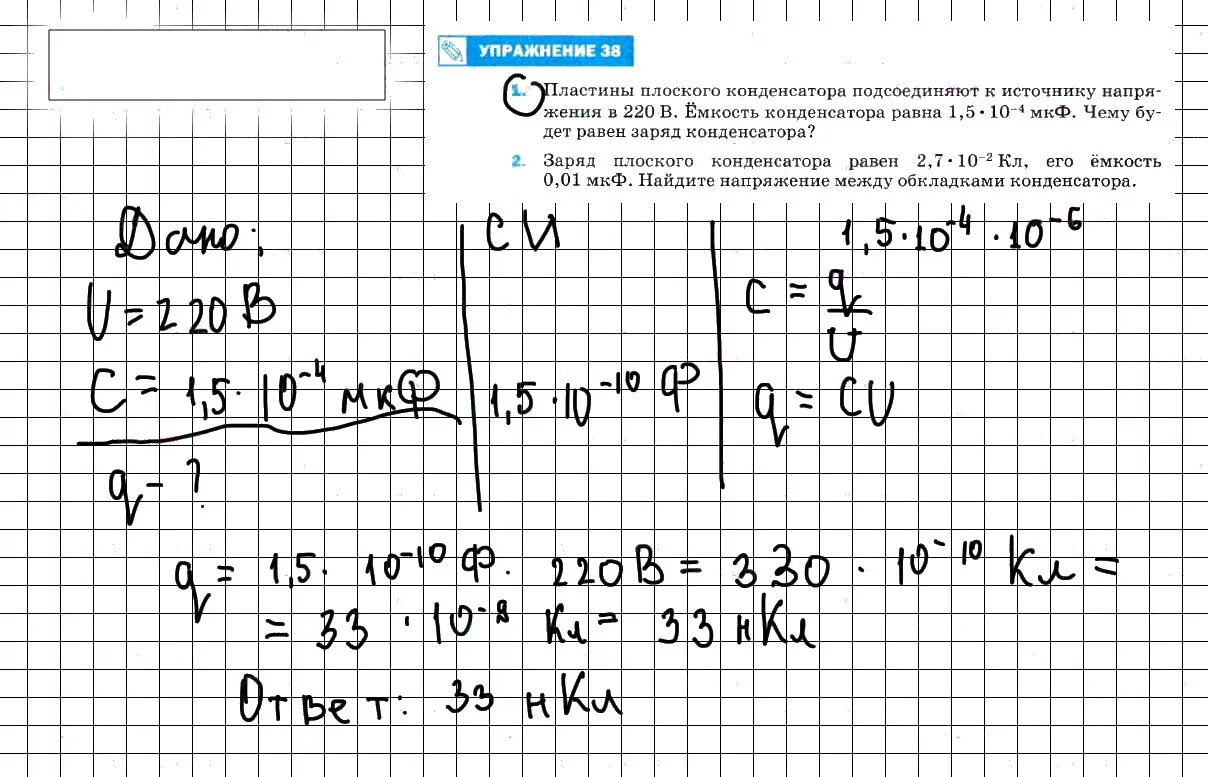 УПРАЖНЕНИЕ 38
1. Пластины плоского конденсатора подсоединяют к источнику напря-
жения в 220 В. Ёмкость конденсатора равна 1,5 · 10⁻⁴ мкФ. Чему бу-
дет равен заряд конденсатора?
2. Заряд плоского конденсатора равен 2,7 · 10⁻² Кл, его ёмкость
0,01 мкФ. Найдите напряжение между обкладками конденсатора.
Дано:
U = 220 В
C = 1,5 · 10⁻⁴ мкФ
q - ?
СИ
1,5 · 10⁻¹⁰ Ф
1,5 · 10⁻⁴ · 10⁻⁶
C = q/U
q = CU
q = 1,5 · 10⁻¹⁰ Ф · 220 В = 330 · 10⁻¹⁰ Кл =
= 33 · 10⁻⁹ Кл = 33 нКл
Ответ: 33 нКл